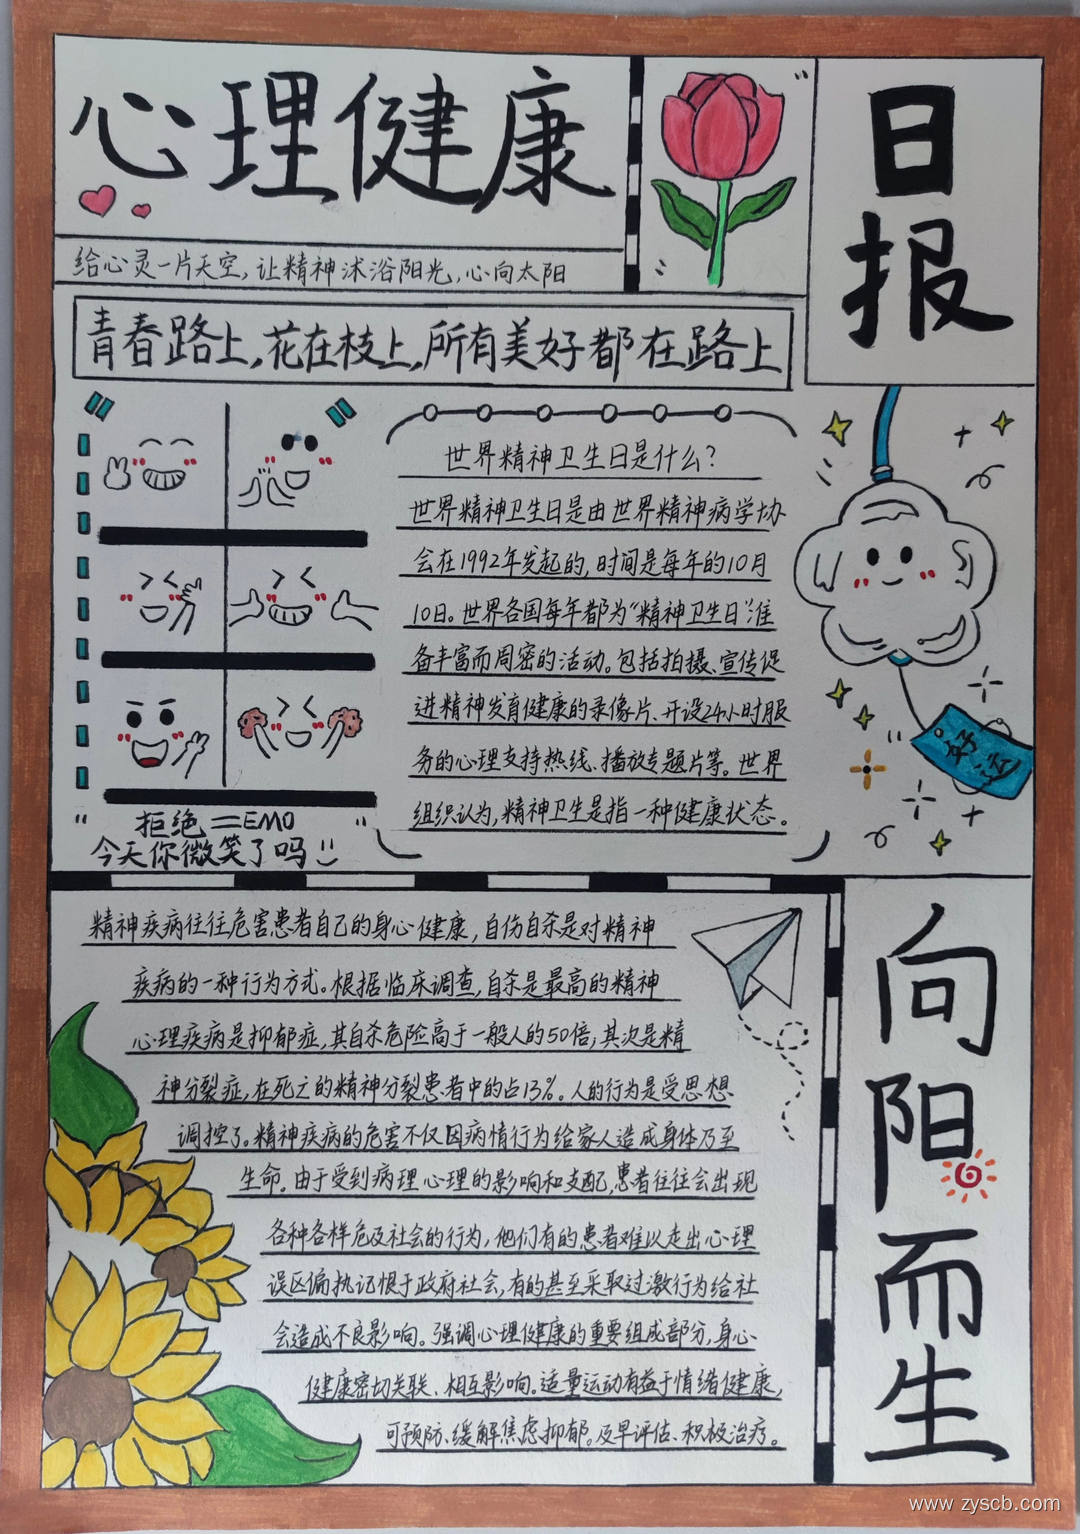 心理健康
日报
给心灵一片天空，让精神沐浴阳光，心向太阳
青春路上，花在枝上，所有美好都在路上
世界精神卫生日是什么？
世界精神卫生日是由世界精神病学协
会在1992年发起的，时间是每年的10月
10日。世界各国每年都为“精神卫生日”准
备丰富而周密的活动。包括拍摄、宣传促
进精神发育健康的录像片、开设24小时服
务的心理支持热线、播放专题片等。世界
组织认为，精神卫生是指一种健康状态。
好运
拒绝=EMO
今天你微笑了吗
精神疾病往往危害患者自己的身心健康，自伤自杀是对精神
疾病的一种行为方式。根据临床调查，自杀是最高的精神
心理疾病是抑郁症，其自杀危险高于一般人的50倍；其次是精
神分裂症，在死亡的精神分裂患者中的占13%。人的行为是受思想
调控了。精神疾病的危害不仅因病情行为给家人造成身体乃至
生命。由于受到病理心理的影响和支配，患者往往会出现
各种各样危及社会的行为，他们有的患者难以走出心理
误区偏执记恨于政府社会，有的甚至采取过激行为给社
会造成不良影响。强调心理健康的重要组成部分，身心
健康密切关联、相互影响。适量运动有益于情绪健康，
可预防、缓解焦虑抑郁。及早评估、积极治疗。
向阳而生
www.zyscb.com